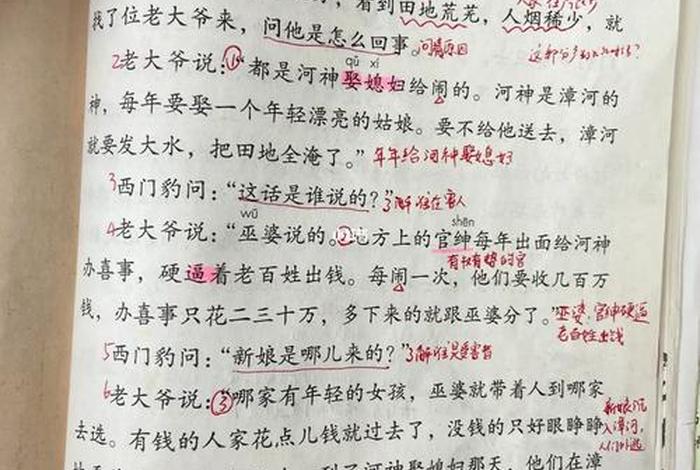 ，看到田地荒芜，人烟稀少，就
找了位老大爷来，问他是怎么回事。问清原因
qǔ xí
2老大爷说：①“都是河神娶媳妇给闹的。河神是漳河的
神，每年要娶一个年轻漂亮的姑娘。要不给他送去，漳河
就要发大水，把田地全淹了。”年年给河神娶媳妇
3西门豹问：“这话是谁说的？”了解谁在害人
wū shēn
4老大爷说：“巫婆说的。②地方上的官绅每年出面给河神
有权有势的官
办喜事，硬逼着老百姓出钱。每闹一次，他们要收几百万
钱，办喜事只花二三十万，多下来的就跟巫婆分了。”巫婆、官绅硬逼
老百姓出钱
5西门豹问：“新娘是哪儿来的？”了解谁是受害者
6老大爷说：③“哪家有年轻的女孩，巫婆就带着人到哪家
新娘沉
去选。有钱的人家花点儿钱就过去了，没钱的只好眼睁睁
入漳河，
人们外逃
到了河神娶媳妇那天，他们在漳